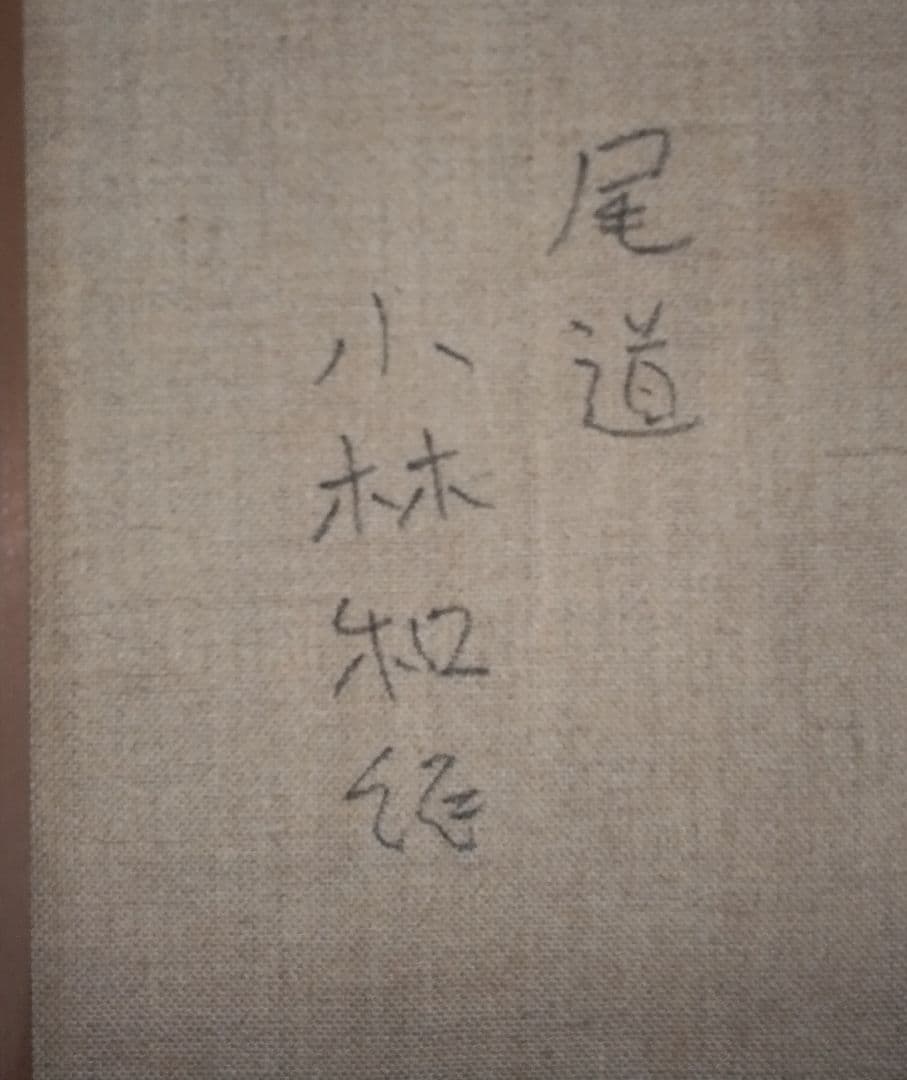 尾道
小林和作